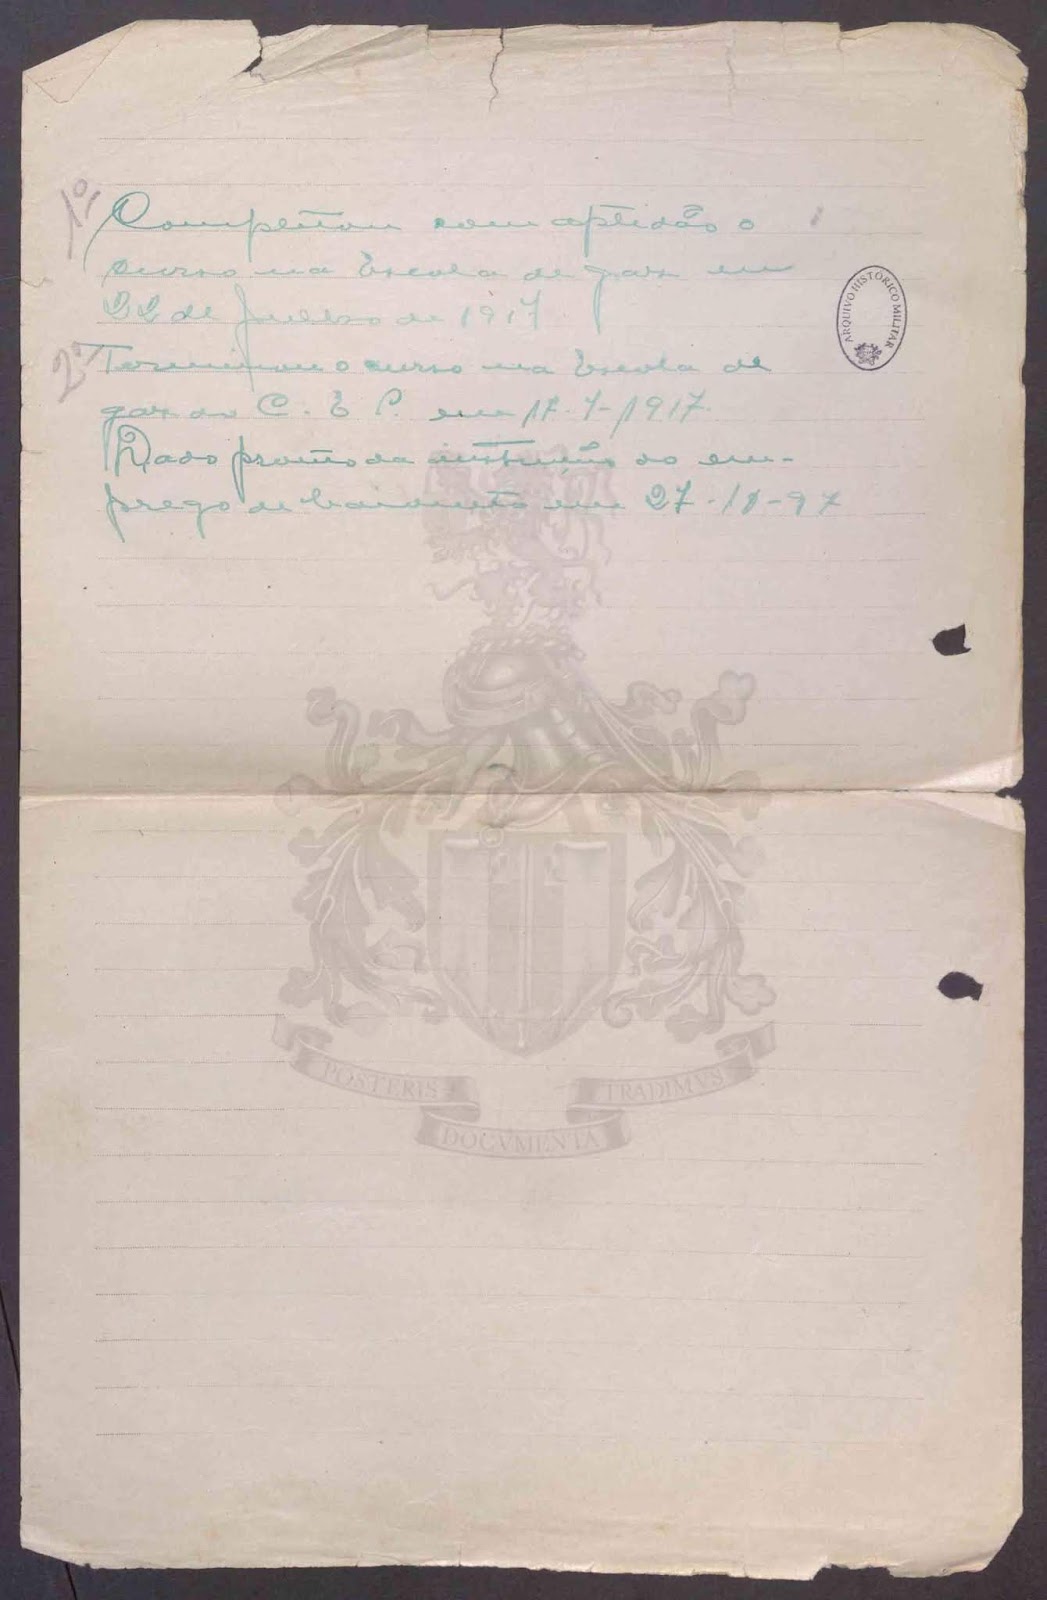 1º Completou com aptidão o
curso na Escola de gaz em
22 de Julho de 1917
2º Terminou o curso na Escola de
gaz do C. E P. em 17-7-1917
Dado pronto da instrução do em-
prego de em 27-10-917
ARQUIVO HISTÓRICO MILITAR
POSTERIS TRADIMVS
DOCVMENTA